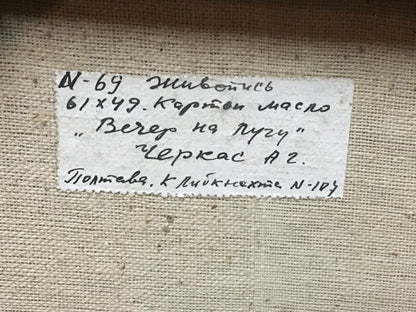 N-69 Живопись
61х49. Картон масло
„Вечер на лугу"
Черкас А г.
Полтава. К Либкнехта N-107